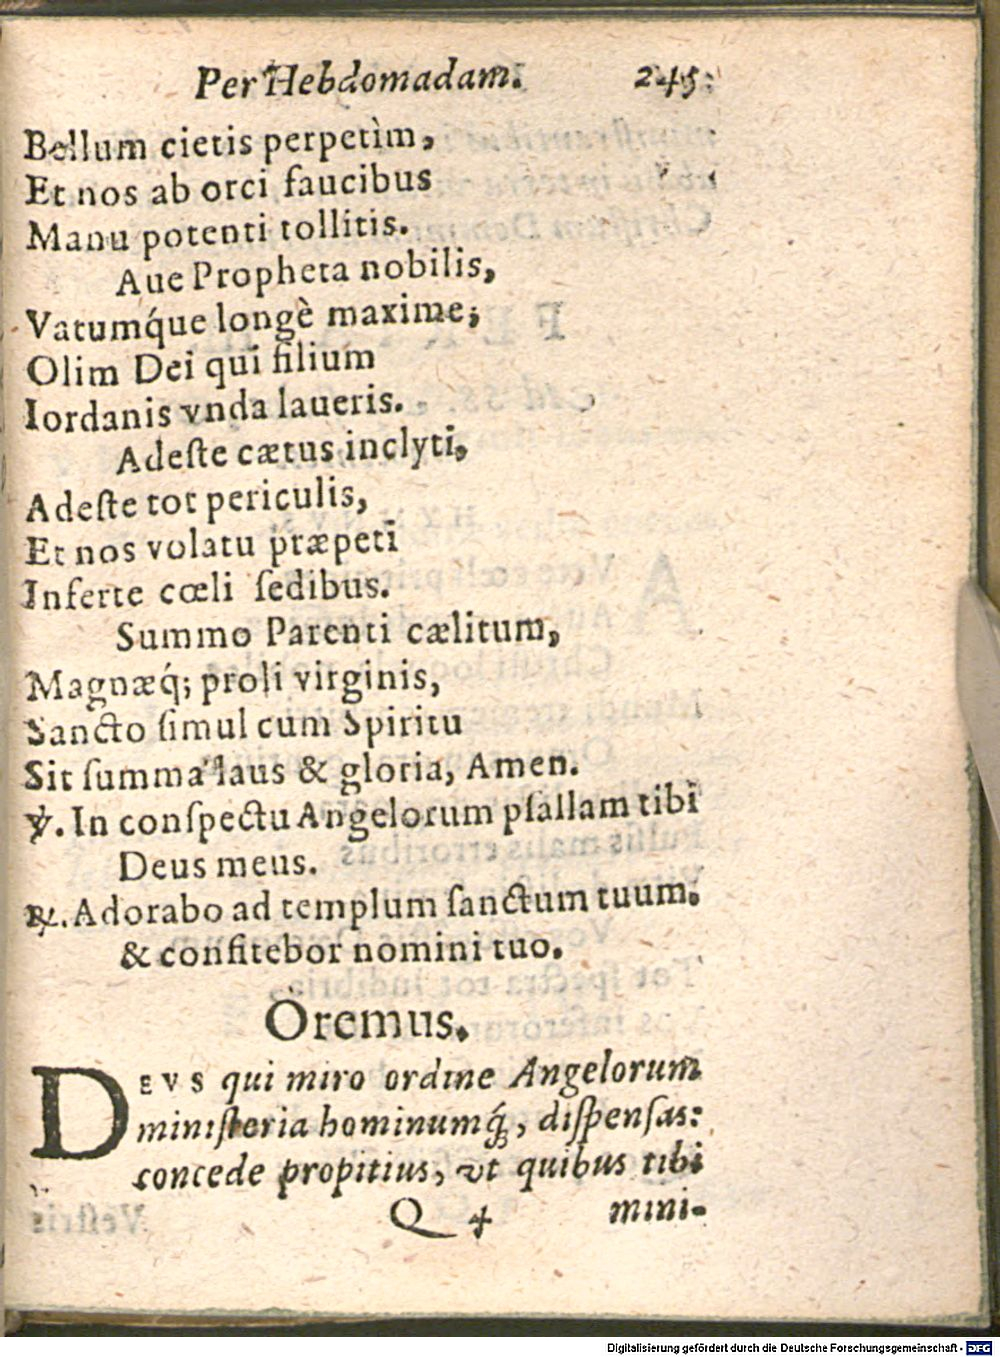 Per Hebdomadam. 245.
Bellum cietis perpetìm,
Et nos ab orci faucibus
Manu potenti tollitis.
Aue Propheta nobilis,
Vatumq́ue longè maxime;
Olim Dei qui filium
Iordanis vnda laueris.
Adeſte cætus inclyti,
Adeſte tot periculis,
Et nos volatu præpeti
Inferte cœli ſedibus.
Summo Parenti cælitum,
Magnæq́; proli virginis,
Sancto ſimul cum Spiritu
Sit ſumma laus & gloria, Amen.
℣. In conſpectu Angelorum pſallam tibi
Deus meus.
℟. Adorabo ad templum ſanctum tuum.
& confitebor nomini tuo.
Oremus.
DEVS qui miro ordine Angelorum
miniſteria hominumq́ꝫ, diſpenſas:
concede propitius, vt quibus tibi
Q 4 mini-
Digitalisierung gefördert durch die Deutsche Forschungsgemeinschaft - DFG